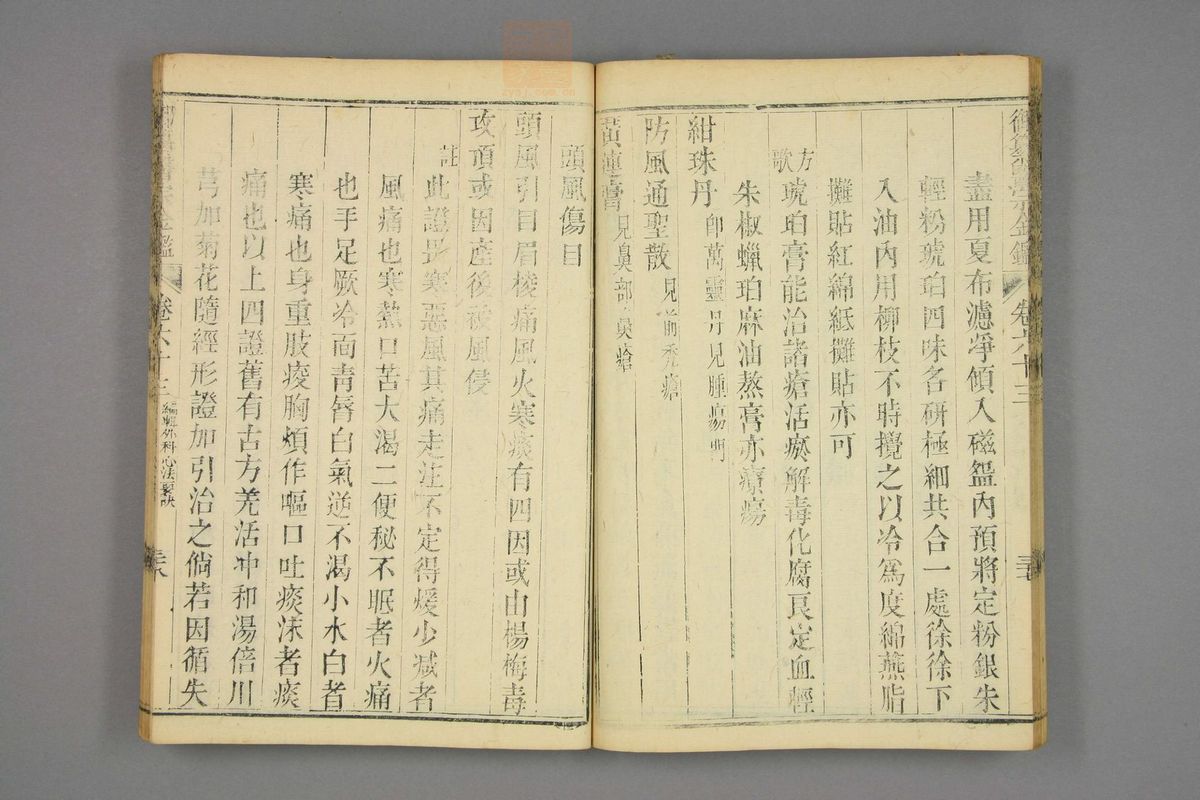 御纂醫宗金鑑 卷六十三 三七
盡用夏布濾淨傾入磁盌內預將定粉銀朱
輕粉琥珀四味各研極細共合一處徐徐下
入油內用柳枝不時攪之以冷爲度綿燕脂
攤貼紅綿紙攤貼亦可
方歌 琥珀膏能治諸瘡活瘀解毒化腐良定血輕
朱椒蠟珀麻油熬膏亦療瘍
紺珠丹 卽萬靈丹見腫瘍門
防風通聖散 見前禿瘡
黃連膏 見鼻部鼻瘡
頭風傷目
頭風引目眉棱痛風火寒痰有四因或由楊梅毒
攻頂或因產後被風侵
註 此證畏寒惡風其痛走注不定得煖少減者
風痛也寒熱口苦大渴二便秘不眠者火痛
也手足厥冷面靑唇白氣逆不渴小水白者
寒痛也身重肢痠胸煩作嘔口吐痰沫者痰
痛也以上四證舊有古方羌活冲和湯倍川
芎加菊花隨經形證加引治之倘若因循失
卷六十三 編輯外科心法要訣 三八